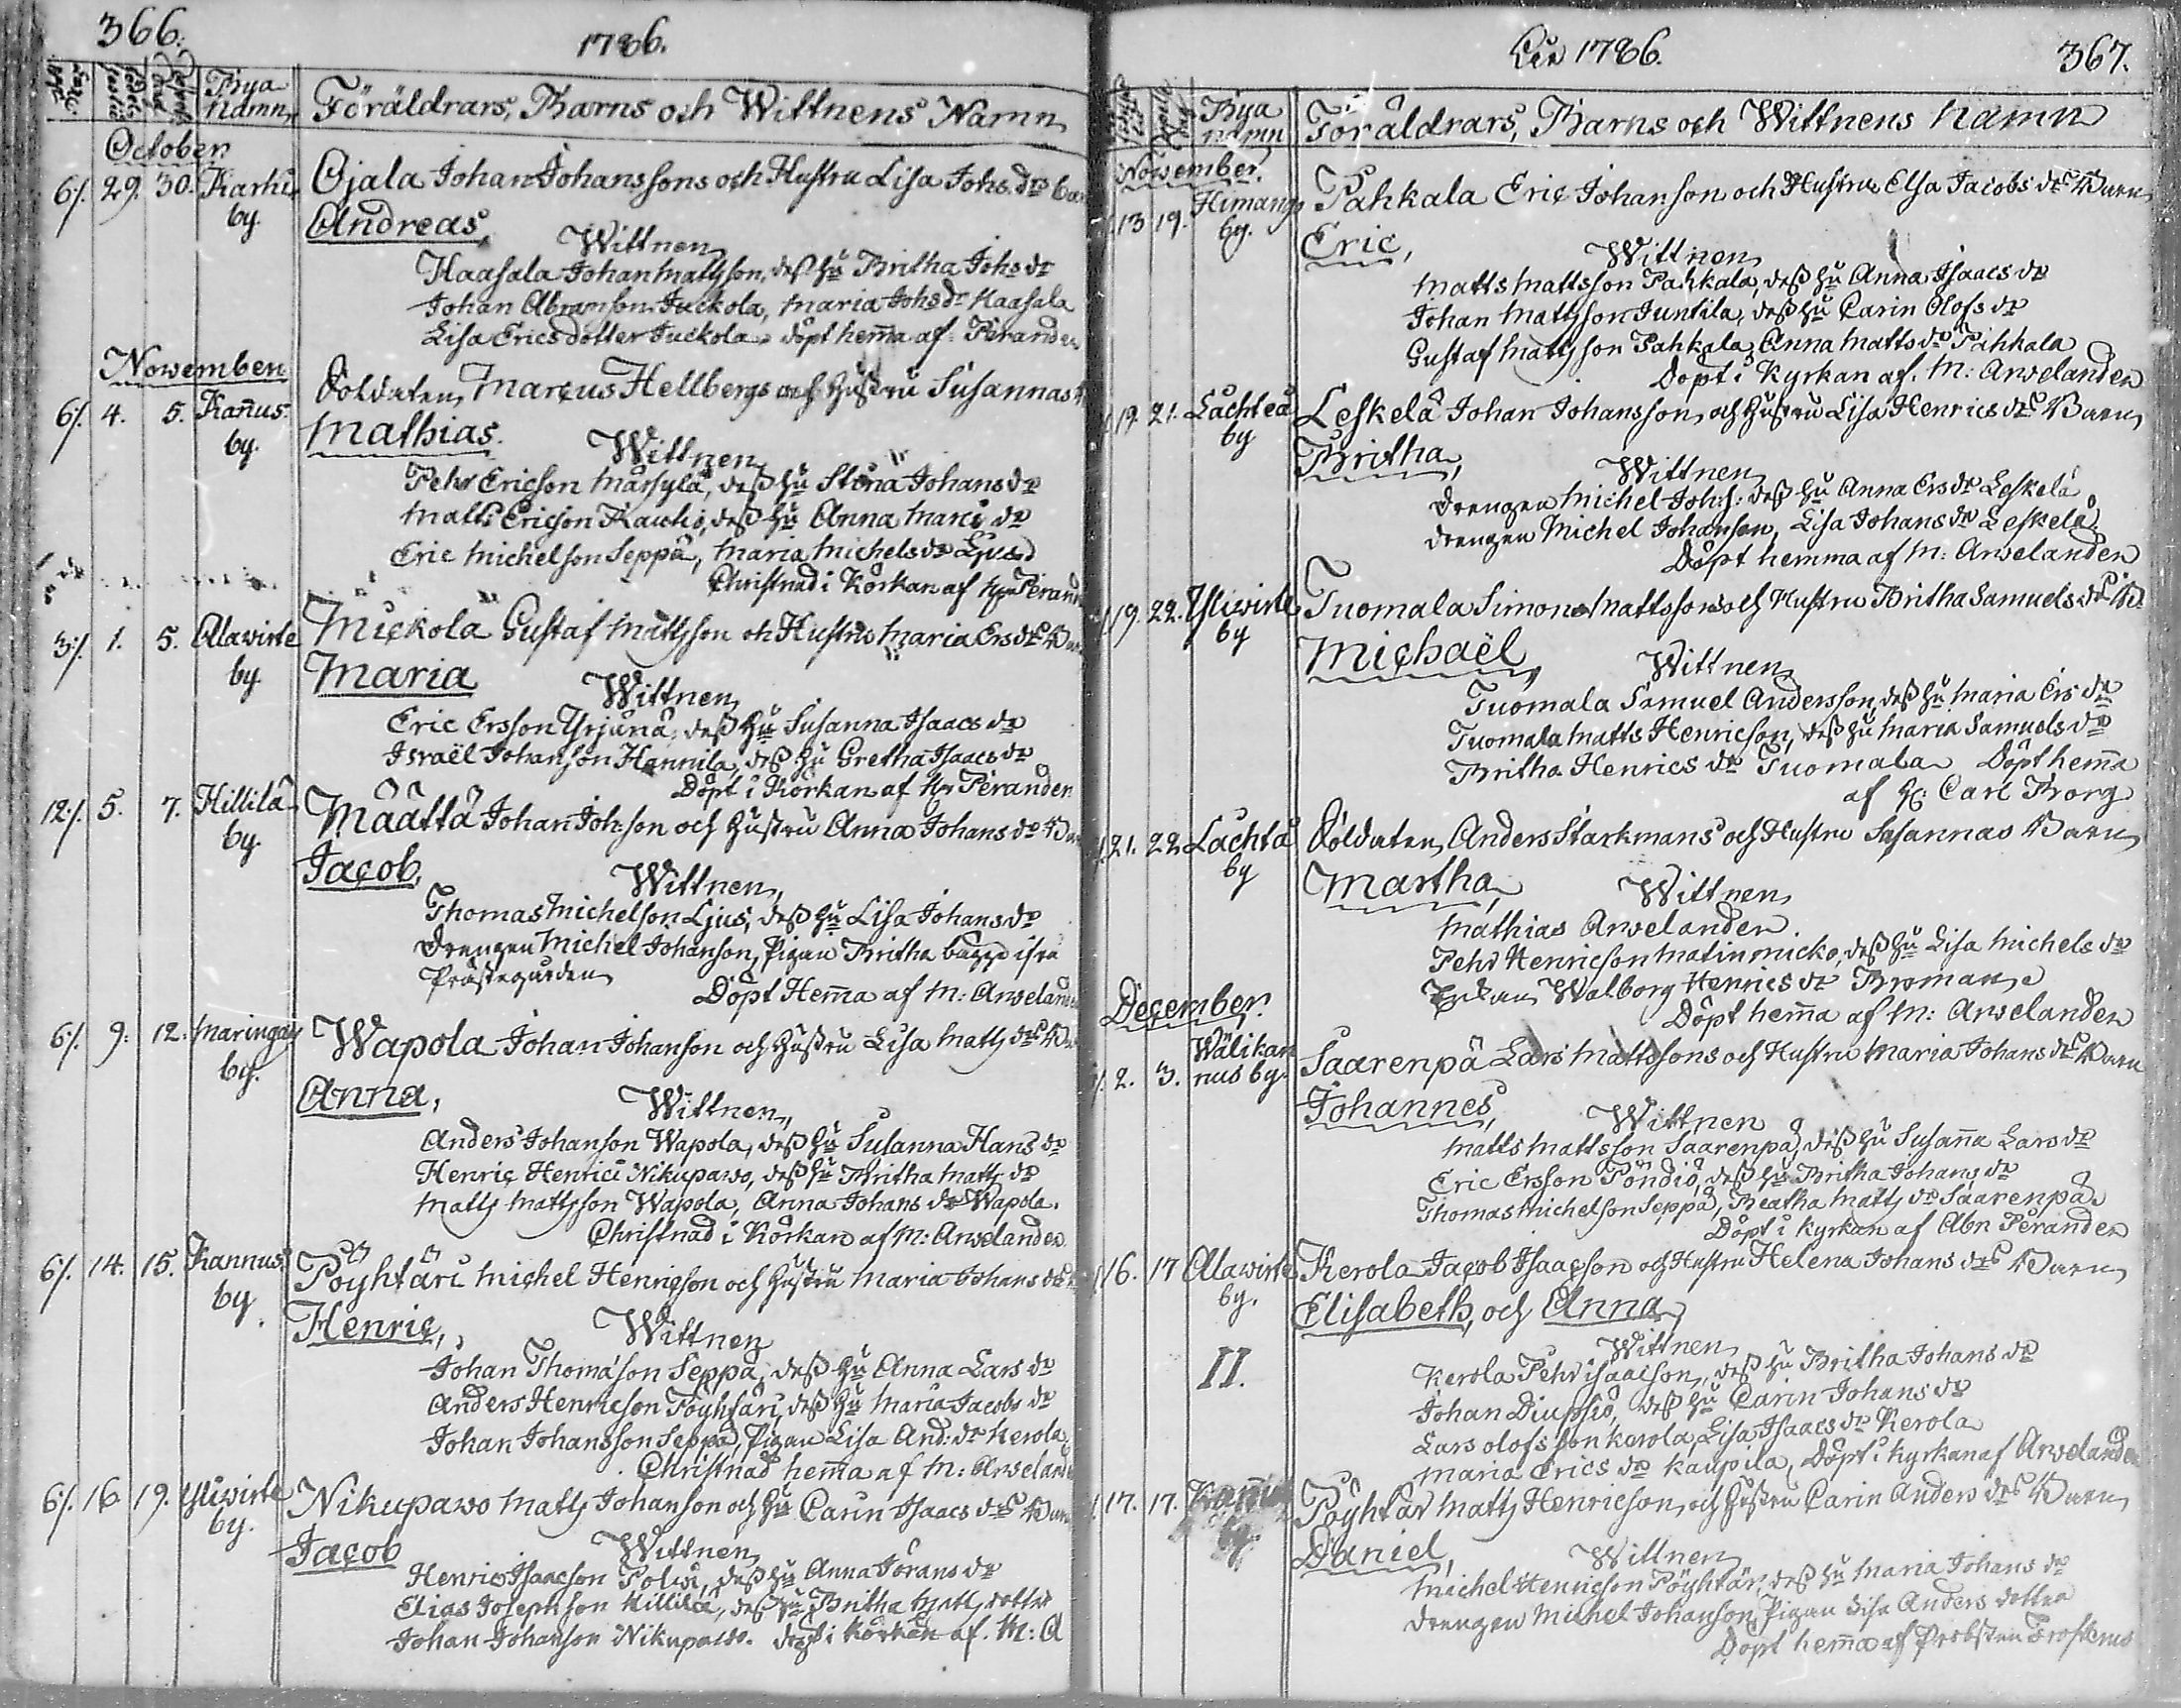 366.
1786.
Bya
Namn
Föräldrars, Barns och Wittnens Namn
October
6/. 29. 30. Karhi by. Ojala Johan Johanssons och Hustru Lisa Johs. dr
Andreas,
Wittnen
Haasala Johan Mattsson, dess hu Britha Johs dr
Johan Abramson Juckola, Maria Johs dr Haasala
Lisa Ericsdotter Juckola, döpt hema af Perander
November
6/. 4. 5. Kanus by. Soldaten Marcus Hellbergs och Hustru Susannas
Mathias.
Wittnen
Pehr Ericson Märsylä, dess hu Stina Johans dr
Matts Ericson Rautio, dess hu Anna Marc dr
Eric Michelson Seppä, Maria Michels dr Ljus
Christnad i Körkan af Hr Perand
3/. 1. 5. Alawirte by Mickola Gustaf Mattsson och Hustru Maria Ers drs Barn
Maria
Wittnen
Eric Ersson Yrjänä, dess hu Susanna Isaacs dr
Israël Johanson Hannila, dess hu Gretha Isaacs dr
Döpt i Körkan af Hr Perander
12/. 5. 7. Hillilä by. Määttä Johan Joh:son och Hustru Anna Johans dr Barn
Jacob,
Wittnen,
Thomas Michelson Ljus, dess hu Lisa Johans dr
Drengen Michel Johanson, Pigan Britha Bagge ifrå
Prästegården
Döpt Hema af M: Arwelander
6/. 9. 12. Maringais by. Wapola Johan Johanson och Hustru Lisa Matts drs
Anna,
Wittnen,
Anders Johanson Wapola, dess hu Susanna Hans dr
Henric Henrici Nikupawo, dess hu Britha Matts dr
Matts Mattsson Wapola, Anna Johans dr Wapola.
Christnad i Körkan af M: Arwelander
6/. 14. 15. Kannus by. Pöyhtäri Michel Henricson och Hustru Maria Johans drs
Henric,
Wittnen
Johan Thomason Seppä, dess hu Anna Lars dr
Anders Henricson Pöyhtäri, dess hu Maria Jacobs dr
Johan Johansson Seppä, Pigan Lisa And: dr Kerola
Christnad hema af M: Arweland
6/. 16. 19. Yliwirte by. Nikupawo Matts Johanson och hu Carin Isaacs drs Barn
Jacob
Wittnen
Henric Isaacson Polwi, dess hu Anna Jörans dr
Elias Josephson Hillilä, dess hu Britha Matts dotter
Johan Johanson Nikupawo. döpt i Körkan af. M: A
1786.
367.
Bya
namn
Föräldrars, Barns och Wittnens Namn
November.
13 19. Himango by. Pahkala Eric Johanson och Hustru Elsa Jacobs drs Barn
Eric,
Wittnen
Matts Mattsson Pahkala, dess hu Anna Isaacs dr
Johan Mattsson Juntila, dess hu Carin Olofs dr
Gustaf Mattsson Pahkala, Anna Matts dr Pahkala
Döpt i Kyrkan af. M: Arwelander
19. 21. Lachteå by Leskelä Johan Johansson, och Hustru Lisa Henrics drs Barn
Britha,
Wittnen
Drengen Michel Joh:s: dess hu Anna Ers dr Leskelä
Drengen Michel Johanson, Lisa Johans dr Leskelä.
Döpt hemma af M: Arwelander
19. 22. Yliwirte by Tuomala Simon Mattsson och Hustru Britha Samuels drs
Michaël,
Wittnen
Tuomala Samuel Andersson, dess hu Maria Ers dr
Tuomala Matts Henricson, dess hu Maria Samuels dr
Britha Henrics dr Tuomala Döpt hema
af H: Carl Borg
21. 22 Lachtå by Soldaten Anders Starkmans och Hustru Susannas Barn
Martha,
Wittnen
Mathias Arwelander.
Pehr Henricson Matinmicko, dess hu Lisa Michels dr
Enkan Walborg Henrics dr Broman
Döpt hema af M: Arwelander
December.
2. 3. Wälikannus by. Saarenpä Lars Mattssons och Hustru Maria Johans drs Barn
Johannes,
Wittnen
Matts Mattsson Saarenpä, dess hu Susana Lars dr
Eric Ersson Pöndiö, dess hu Britha Johans dr
Thomas Michelson Seppä, Beatha Matts dr Saarenpä
Döpt i Kyrkan af Abr Perander
16. 17 Alawirte by. Kerola Jacob Isaacson och Hustru Helena Johans drs Barn
Elisabeth, och Anna
II.
Wittnen
Kerola Pehr Isaacson, dess hu Britha Johans dr
Johan Diupsiö, dess hu Carin Johans dr
Lars Olofsson Kerola, Lisa Isaacs dr Kerola
Maria Erics dr Kaupila, Döpt i Kyrkan af Arwelander
17. 17. by. Pöyhtär Matts Henricson, och Hustru Carin Anders drs Barn
Daniel,
Wittnen
Michel Henricson Pöyhtär, dess hu Maria Johans dr
Drengen Michel Johanson, Pigan Anders dotter
Döpt hema af Probsten Frosterus